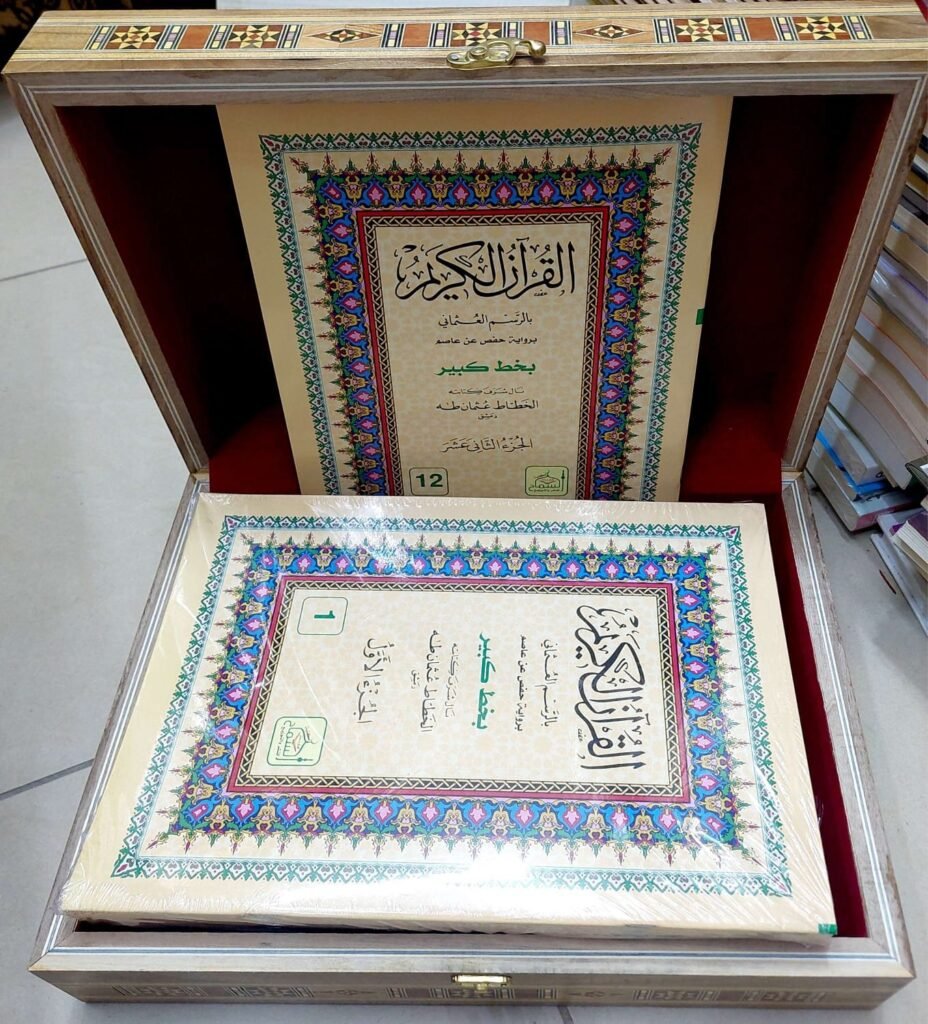 القُرآنُ الكَرِيمُ
بالرَّسْمِ العُثماني
برواية حفص عن عاصم
بخط كبير
نَالَ شَرَفَ كِتَابَتِه
الخَطَّاط عُثمان طٰه
دمشق
الجُزْءُ الثَّانِي عَشَرَ
12
السماح
القُرآنُ الكَرِيمُ
بالرَّسْمِ العُثماني
برواية حفص عن عاصم
بخط كبير
نَالَ شَرَفَ كِتَابَتِه
الخَطَّاط عُثمان طٰه
دمشق
الجُزْءُ الأَوَّلُ
1
السماح